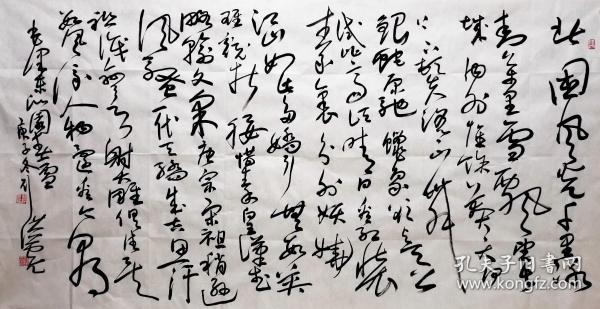 北国风光千里冰
封万里雪飘望长
城内外惟余莽莽大河
上下顿失滔滔山舞
银蛇原驰蜡象欲与天公
试比高须晴日看红装
素裹分外妖娆
江山如此多娇引无数英
雄竞折腰惜秦皇汉武
略输文采唐宗宋祖稍逊
风骚一代天骄成吉思汗
只识弯弓射大雕俱往矣
数风流人物还看今朝
毛泽东沁园春雪
庚子冬月
孔夫子旧书网
www.kongfz.com